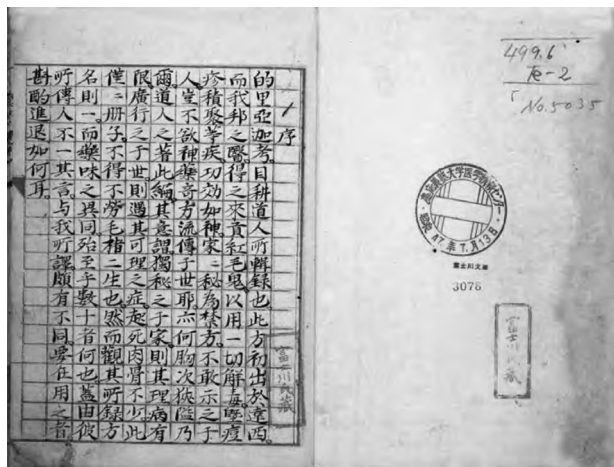 499.6
テ-2
No.5035
昭和 47.年 7.月 13日
富士川文庫
3076
富士川家蔵
序
的里亜加考。目耕道人所輯録也。此方初出於遠西。
而我邦之醫得之来貢紅毛鬼。以用一切解毒
疹積聚等疾。功効如神。家〻秘為禁方。不敢示之于
人。豈不欲神藥奇方流傳于世耶。亦何胸次狹隘乃
爾。道人之著此編。其意謂獨秘之于家。則其理病有
限。廣行之于世。則遇其可理之症。起死肉骨不少。此
僅〻冊子。不得不勞毛楮二生也。然而觀其所録。方
名則一。而藥味之異同。殆至乎數十者何也。蓋由彼
所傳人不一其言。与我所譯頗有不同。要在用之者
斟酌進退如何耳。